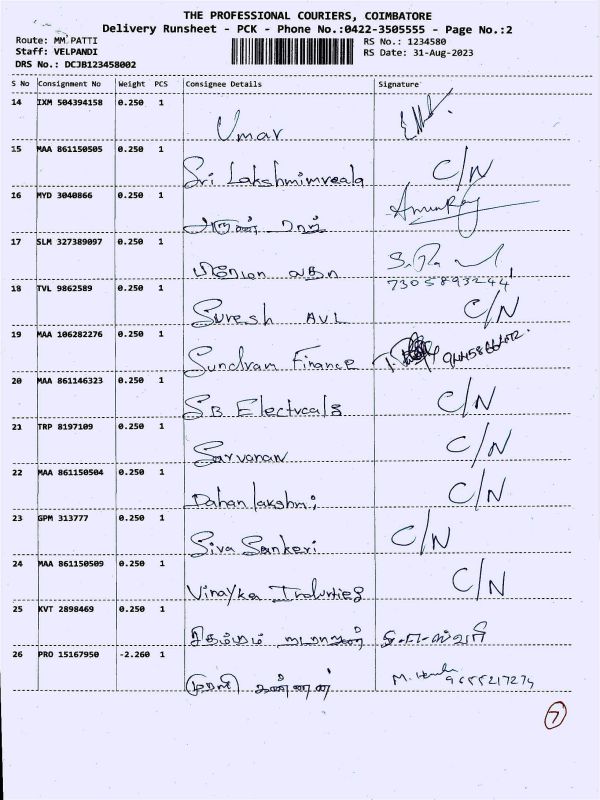 THE PROFESSIONAL COURIERS, COIMBATORE
Delivery Runsheet - PCK - Phone No.:0422-3505555 - Page No.:2
Route: MM PATTI RS No.: 1234580
Staff: VELPANDI RS Date: 31-Aug-2023
DRS No.: DCJB123458002
S No Consignment No Weight PCS Consignee Details Signature
14 IXM 504394158 0.250 1 Umar
15 MAA 861150505 0.250 1 Sri Lakshmimveala C/N
16 MYD 3040866 0.250 1 அருண் ராஜ் ArunRaj
17 SLM 327389097 0.250 1 7305893244
18 TVL 9862589 0.250 1 Suresh AVL C/N
19 MAA 106282276 0.250 1 Sundram Finance
20 MAA 861146323 0.250 1 SB Electricals C/N
21 TRP 8197109 0.250 1 Sarvanan C/N
22 MAA 861150504 0.250 1 Dahanlakshmi C/N
23 GPM 313777 0.250 1 Siva Sankari C/N
24 MAA 861150509 0.250 1 Vinayka C/N
25 KVT 2898469 0.250 1
26 PRO 15167950 -2.260 1 முரளி கண்ணன் 9655217274
7